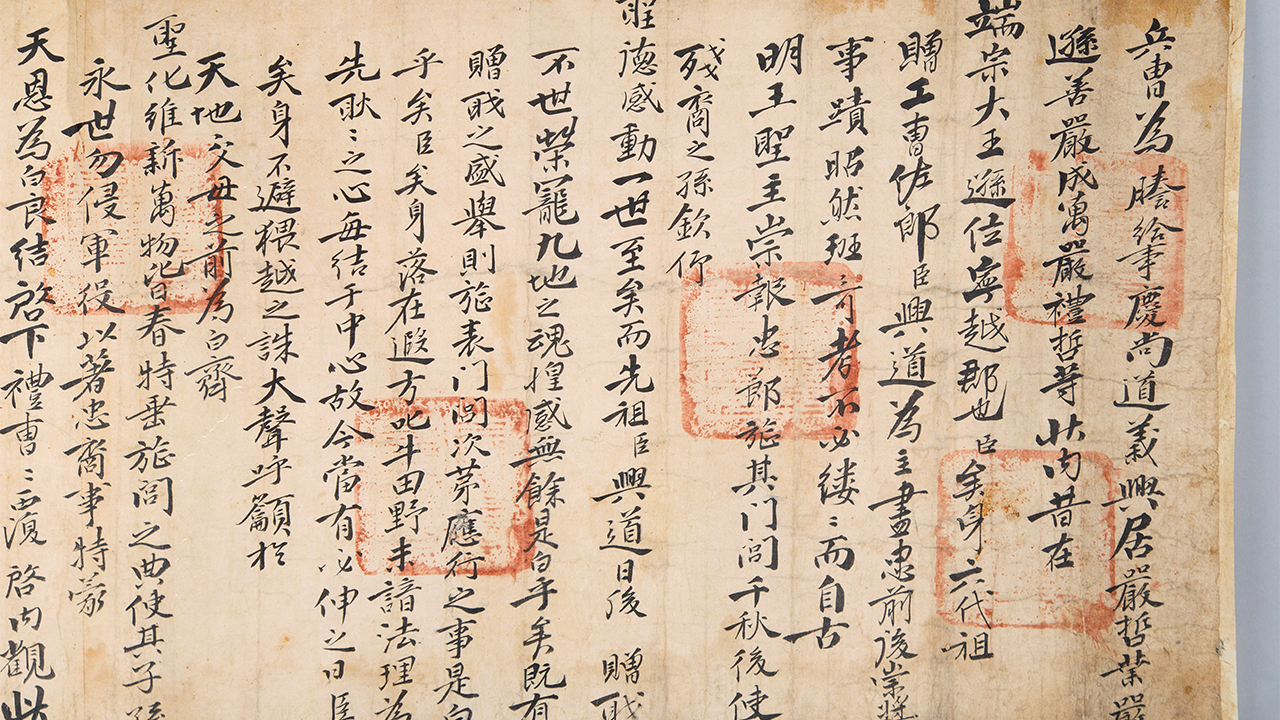 兵曹為謄給事慶尚道義興居嚴哲業嚴
遜善嚴成萬嚴禮哲等狀內昔在
端宗大王遜位寧越郡也臣矣身六代祖
贈工曹佐郎臣興道為主盡忠前後崇奬
事蹟昭然班可考不必縷〻而自古
明王聖主崇報忠節旌其门閭千秋後使
殘裔之孫欽仰
聖德感動一世至矣而先祖臣興道日後 贈職
不世榮寵九地之魂惶感無餘是白乎矣既有
贈職之盛舉則旌表门閭次茅應行之事是白
乎矣臣矣身落在遐方叱牛田野未諳法理為
先耿〻之心每结于中心故今當有必伸之日臣
矣身不避猥越之誅大聲呼籲扵
天地父母之前為白齊
聖化維新萬物皆春特垂旌閭之典使其子孫
永世勿侵軍役以著忠裔事特蒙
天恩為白良结啓下禮曹〻覆啓內觀此